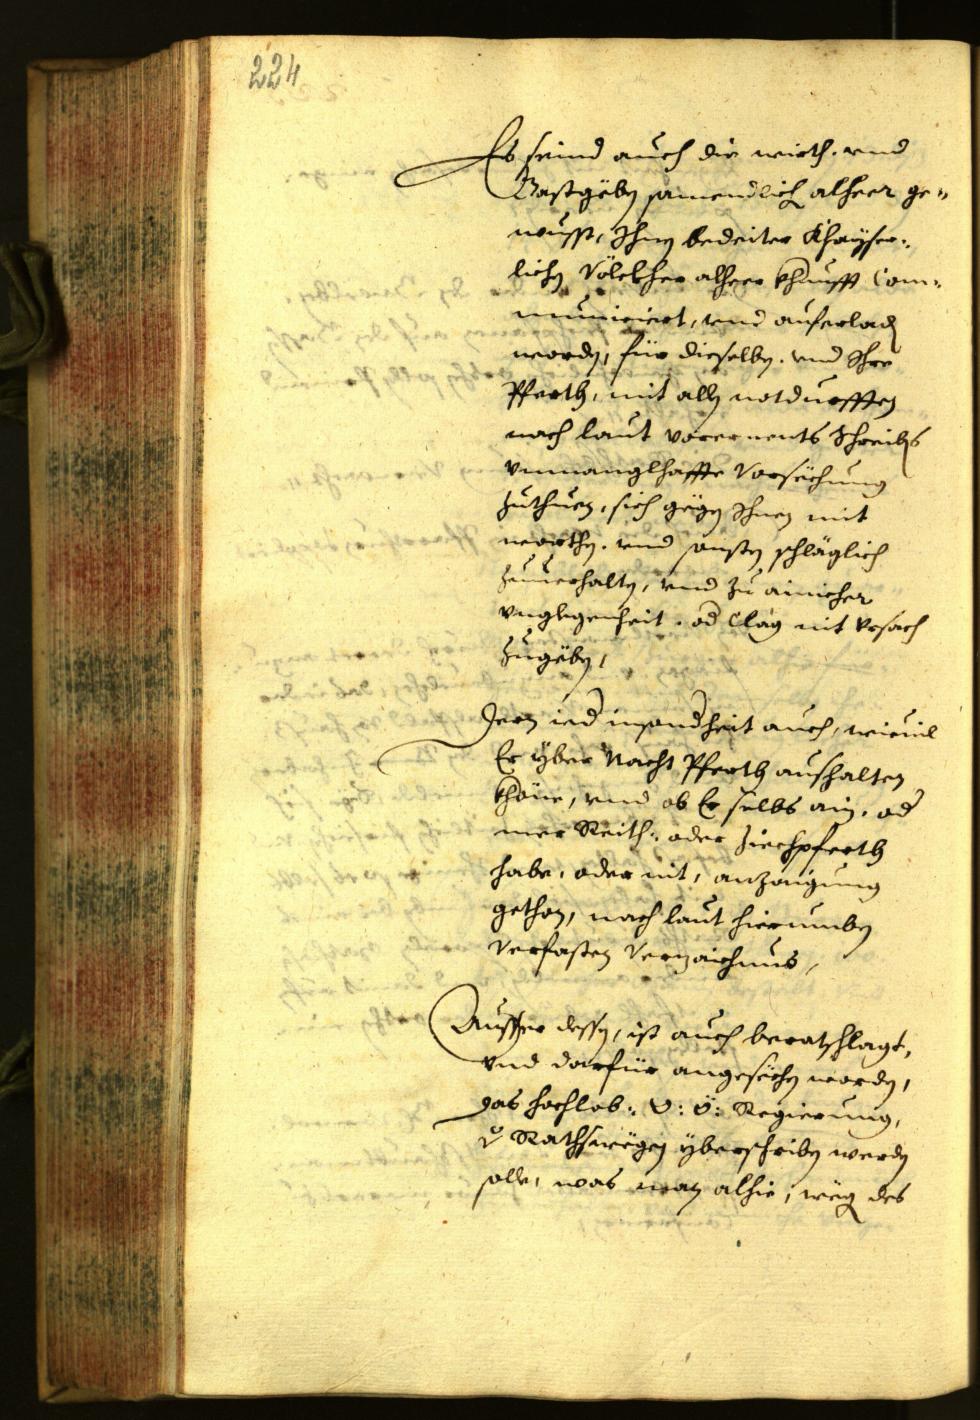 224
Es seind auch die wirth. vnd
Gastgëben samendlich alheer ge„
wüsst, Ihnen bedeiter Khaÿser„
lichen Völckher alheer khunfft Com„
municiert, vnd auferladen
worden, für dieselben. vnd Ihre
Pferth, mit allen notdurfften
nach laut vorernents Schreibens
vnmanglhaffte Versëchung
zuthuen, sich gegen Ihnen mit
worthen. vnd sonsten schläglich
zuuerhalten, vnd zu ainicher
vnglegenheit. od Clag nit vrsach
zugëben,
Jeen ied insonderheit auch, wieuil
Er ÿber Nacht Pferth aushalten
khöne, vnd ob Er selbs ain. od
mer Reith: oder Ziechpferth
habe, oder nit, anzaigung
gethon, nach laut hierumben
verfasten Verzaichnus,
Ausser dessen, ist auch beratschlagt,
vnd darfür angesëchen worden,
das hochlob: V: Ö: Regierung,
Rathswëgen ÿberschriben werden
solle, was man alhie, wëg des